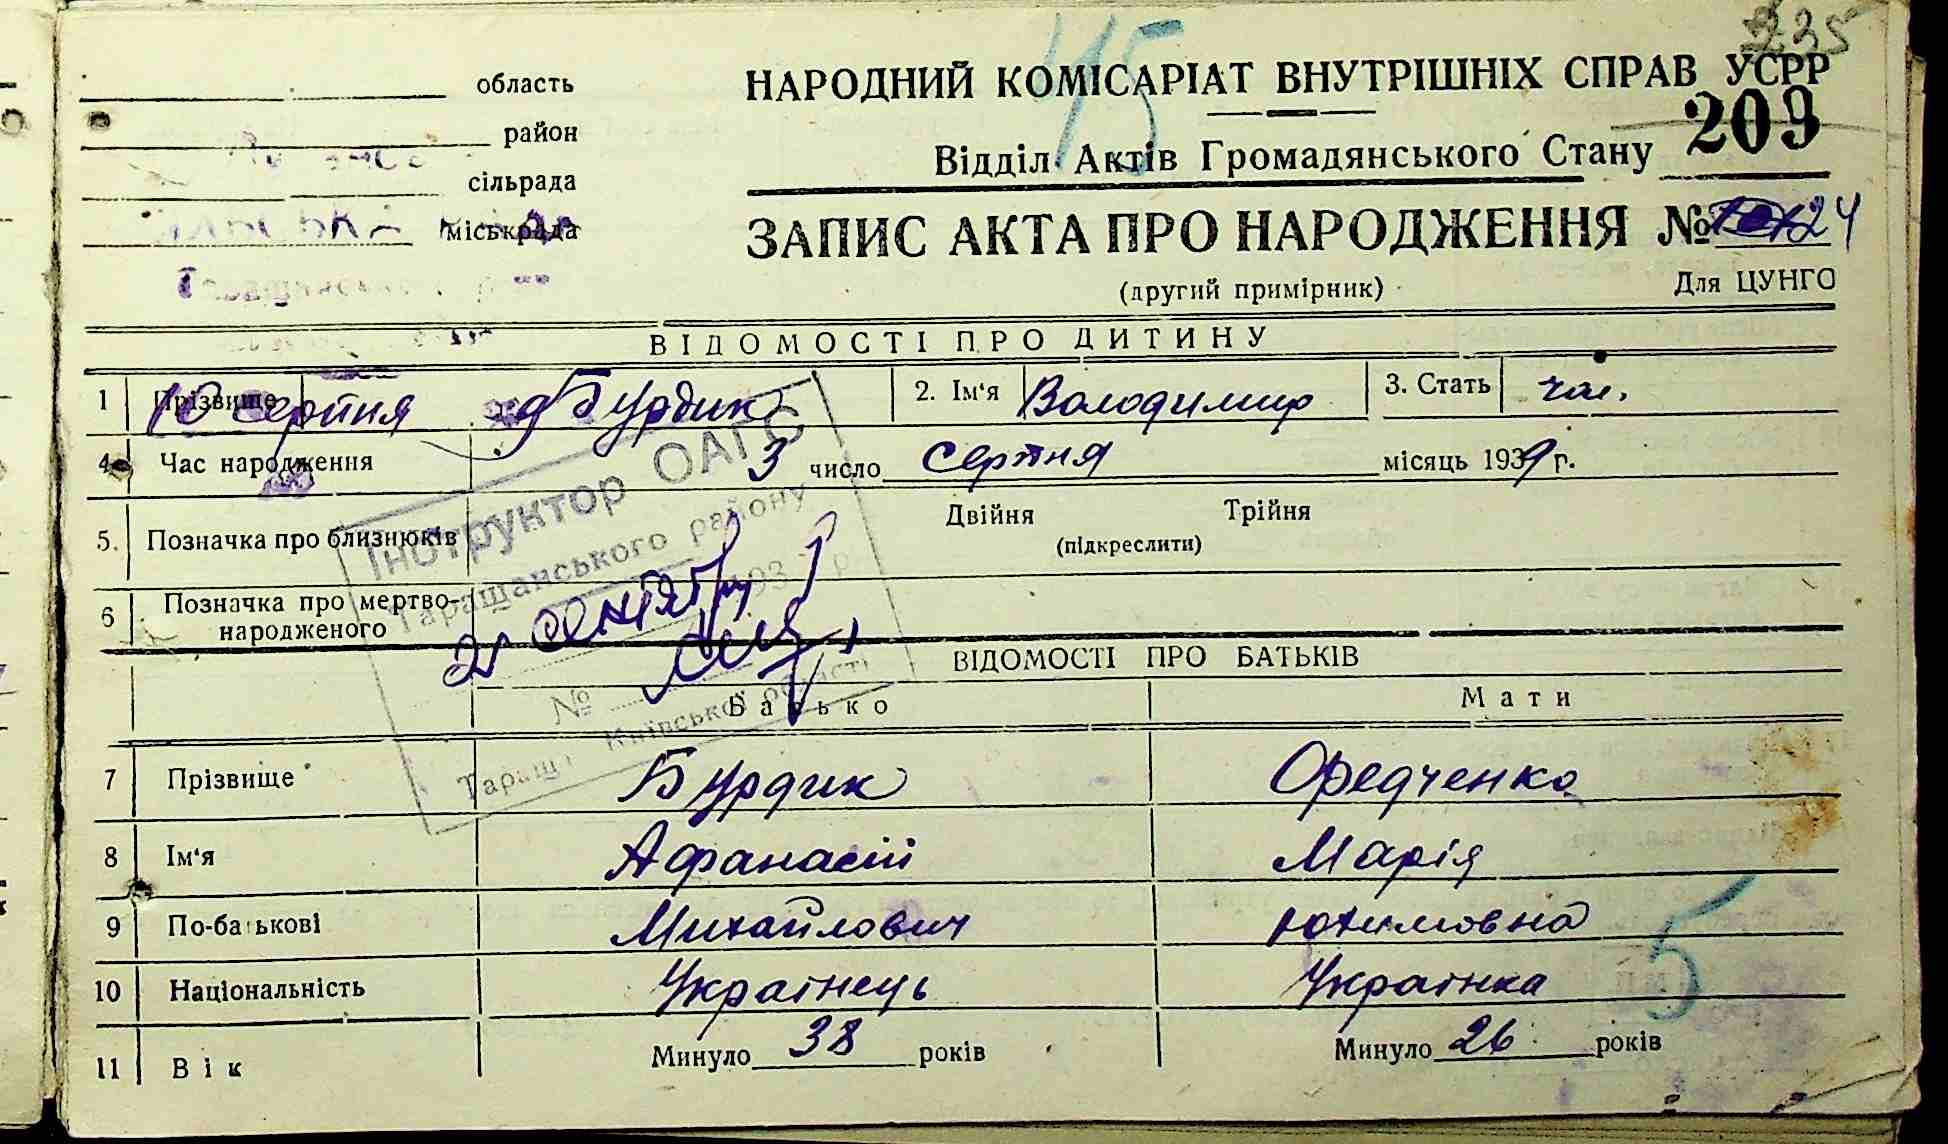 235
45
область
НАРОДНИЙ КОМІСАРІАТ ВНУТРІШНІХ СПРАВ УСРР
район
209
Відділ Актів Громадянського Стану
сільрада
міськрада
ЗАПИС АКТА ПРО НАРОДЖЕННЯ № 124
(другий примірник)
Для ЦУНГО
ВІДОМОСТІ ПРО ДИТИНУ
1 Прізвище Бурдик 2. Ім'я Володимир 3. Стать чол.
10 серпня
4 Час народження 3 число серпня місяць 1939 г.
5. Позначка про близнюків Двійня Трійня
(підкреслити)
6 Позначка про мертво-
народженого
Інструктор ОАГС
Таращанського району
21 сентября 193 р.
№
Тараща Київської області
ВІДОМОСТІ ПРО БАТЬКІВ
Батько Мати
7 Прізвище Бурдик Федченко
8 Ім'я Афанасій Марія
9 По-батькові Михайлович Юхимовна
10 Національність Українець Українка
5
11 Вік Минуло 38 років Минуло 26 років